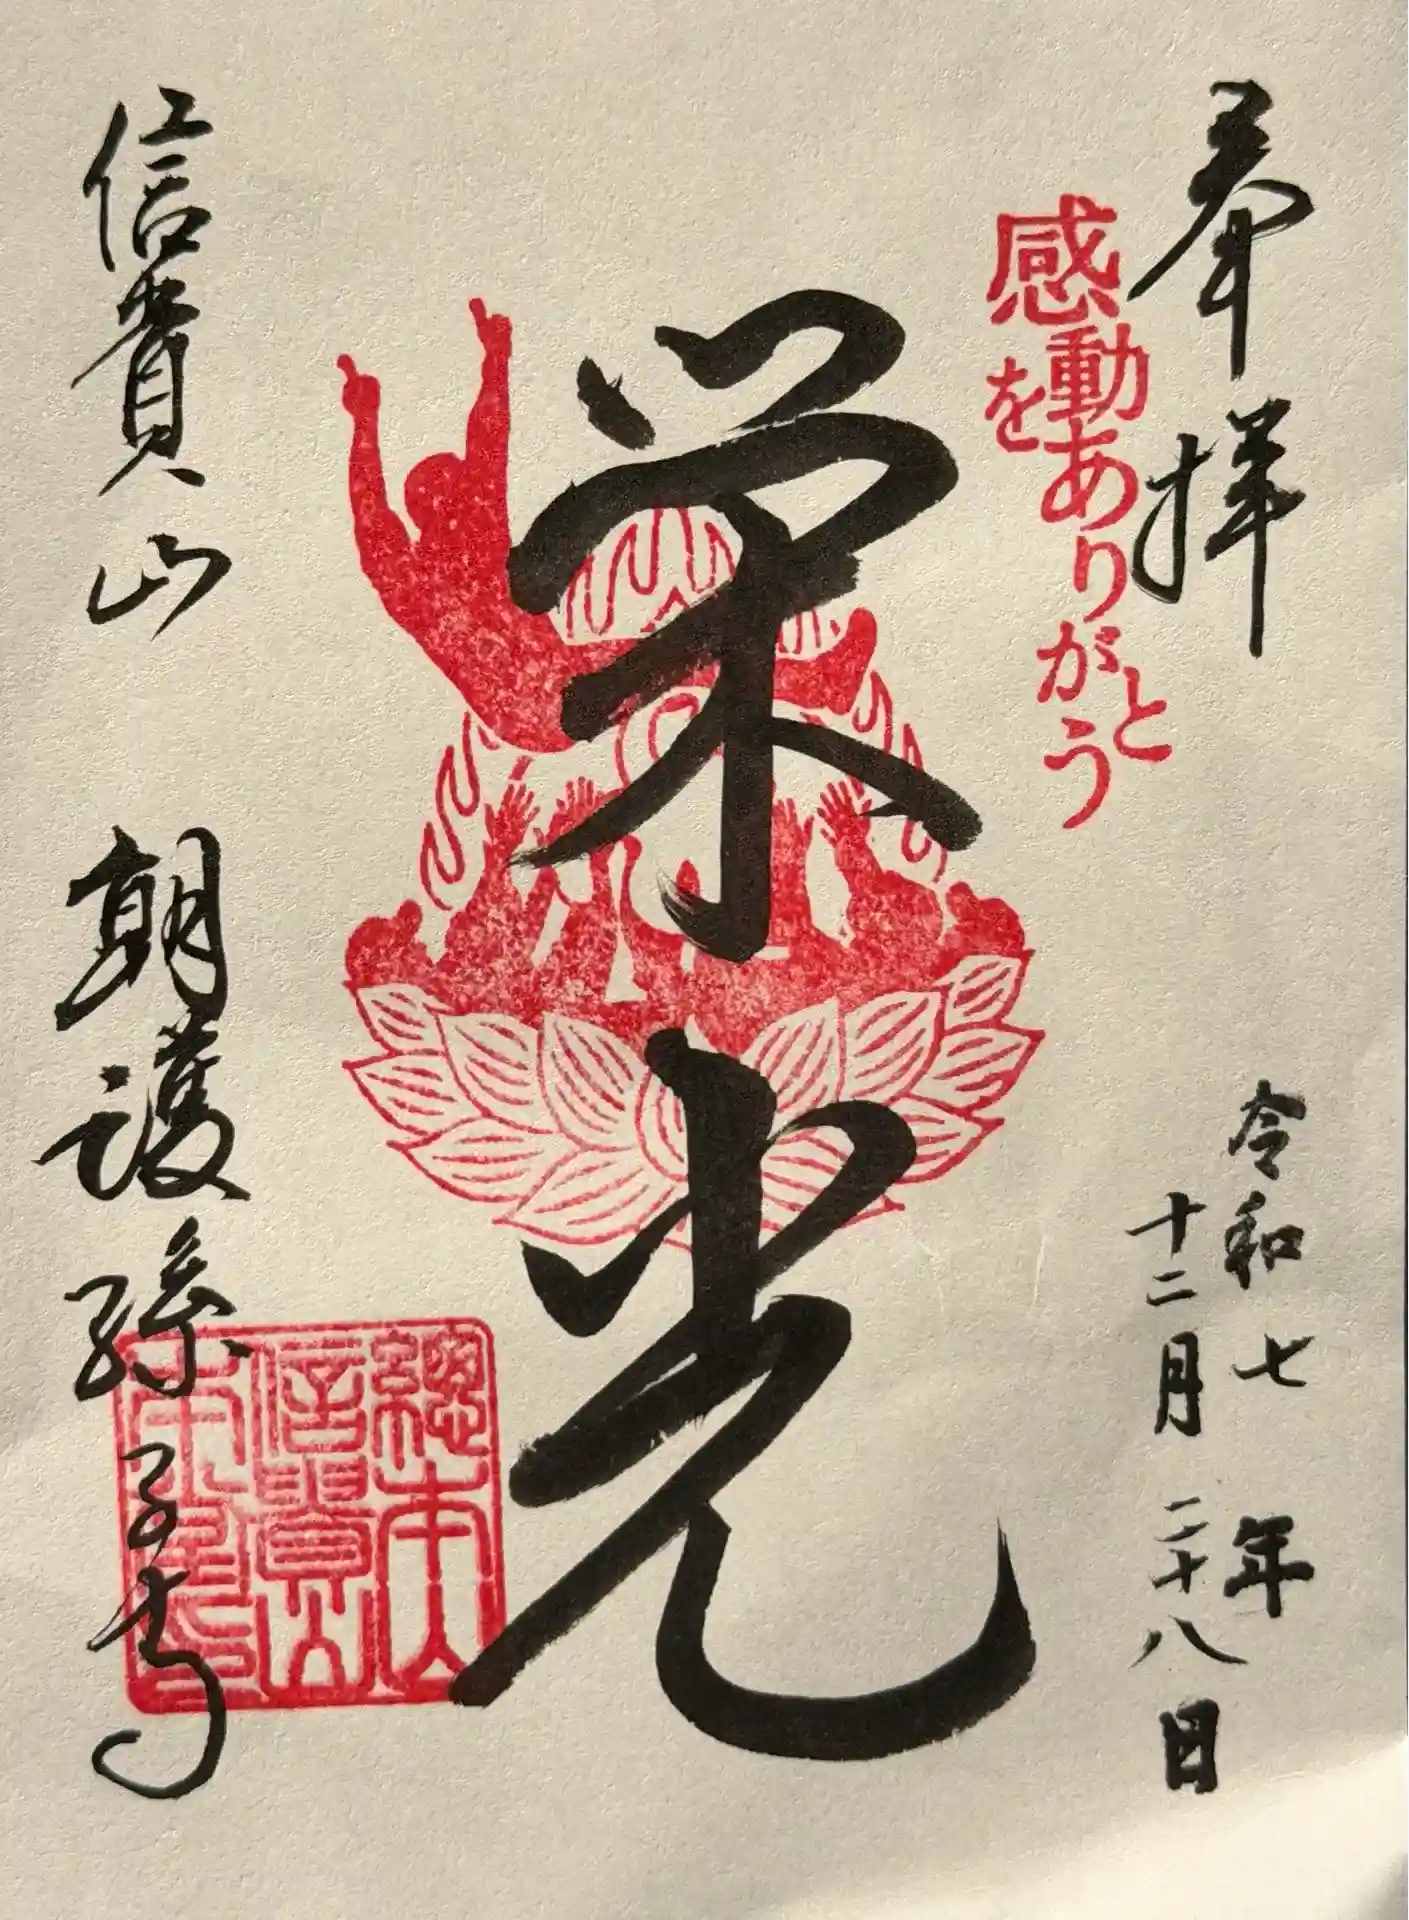 奉拝
感動を
ありがとう
令和七年
十二月二十八日
栄光
信貴山 朝護孫子寺
總本山
信貴山